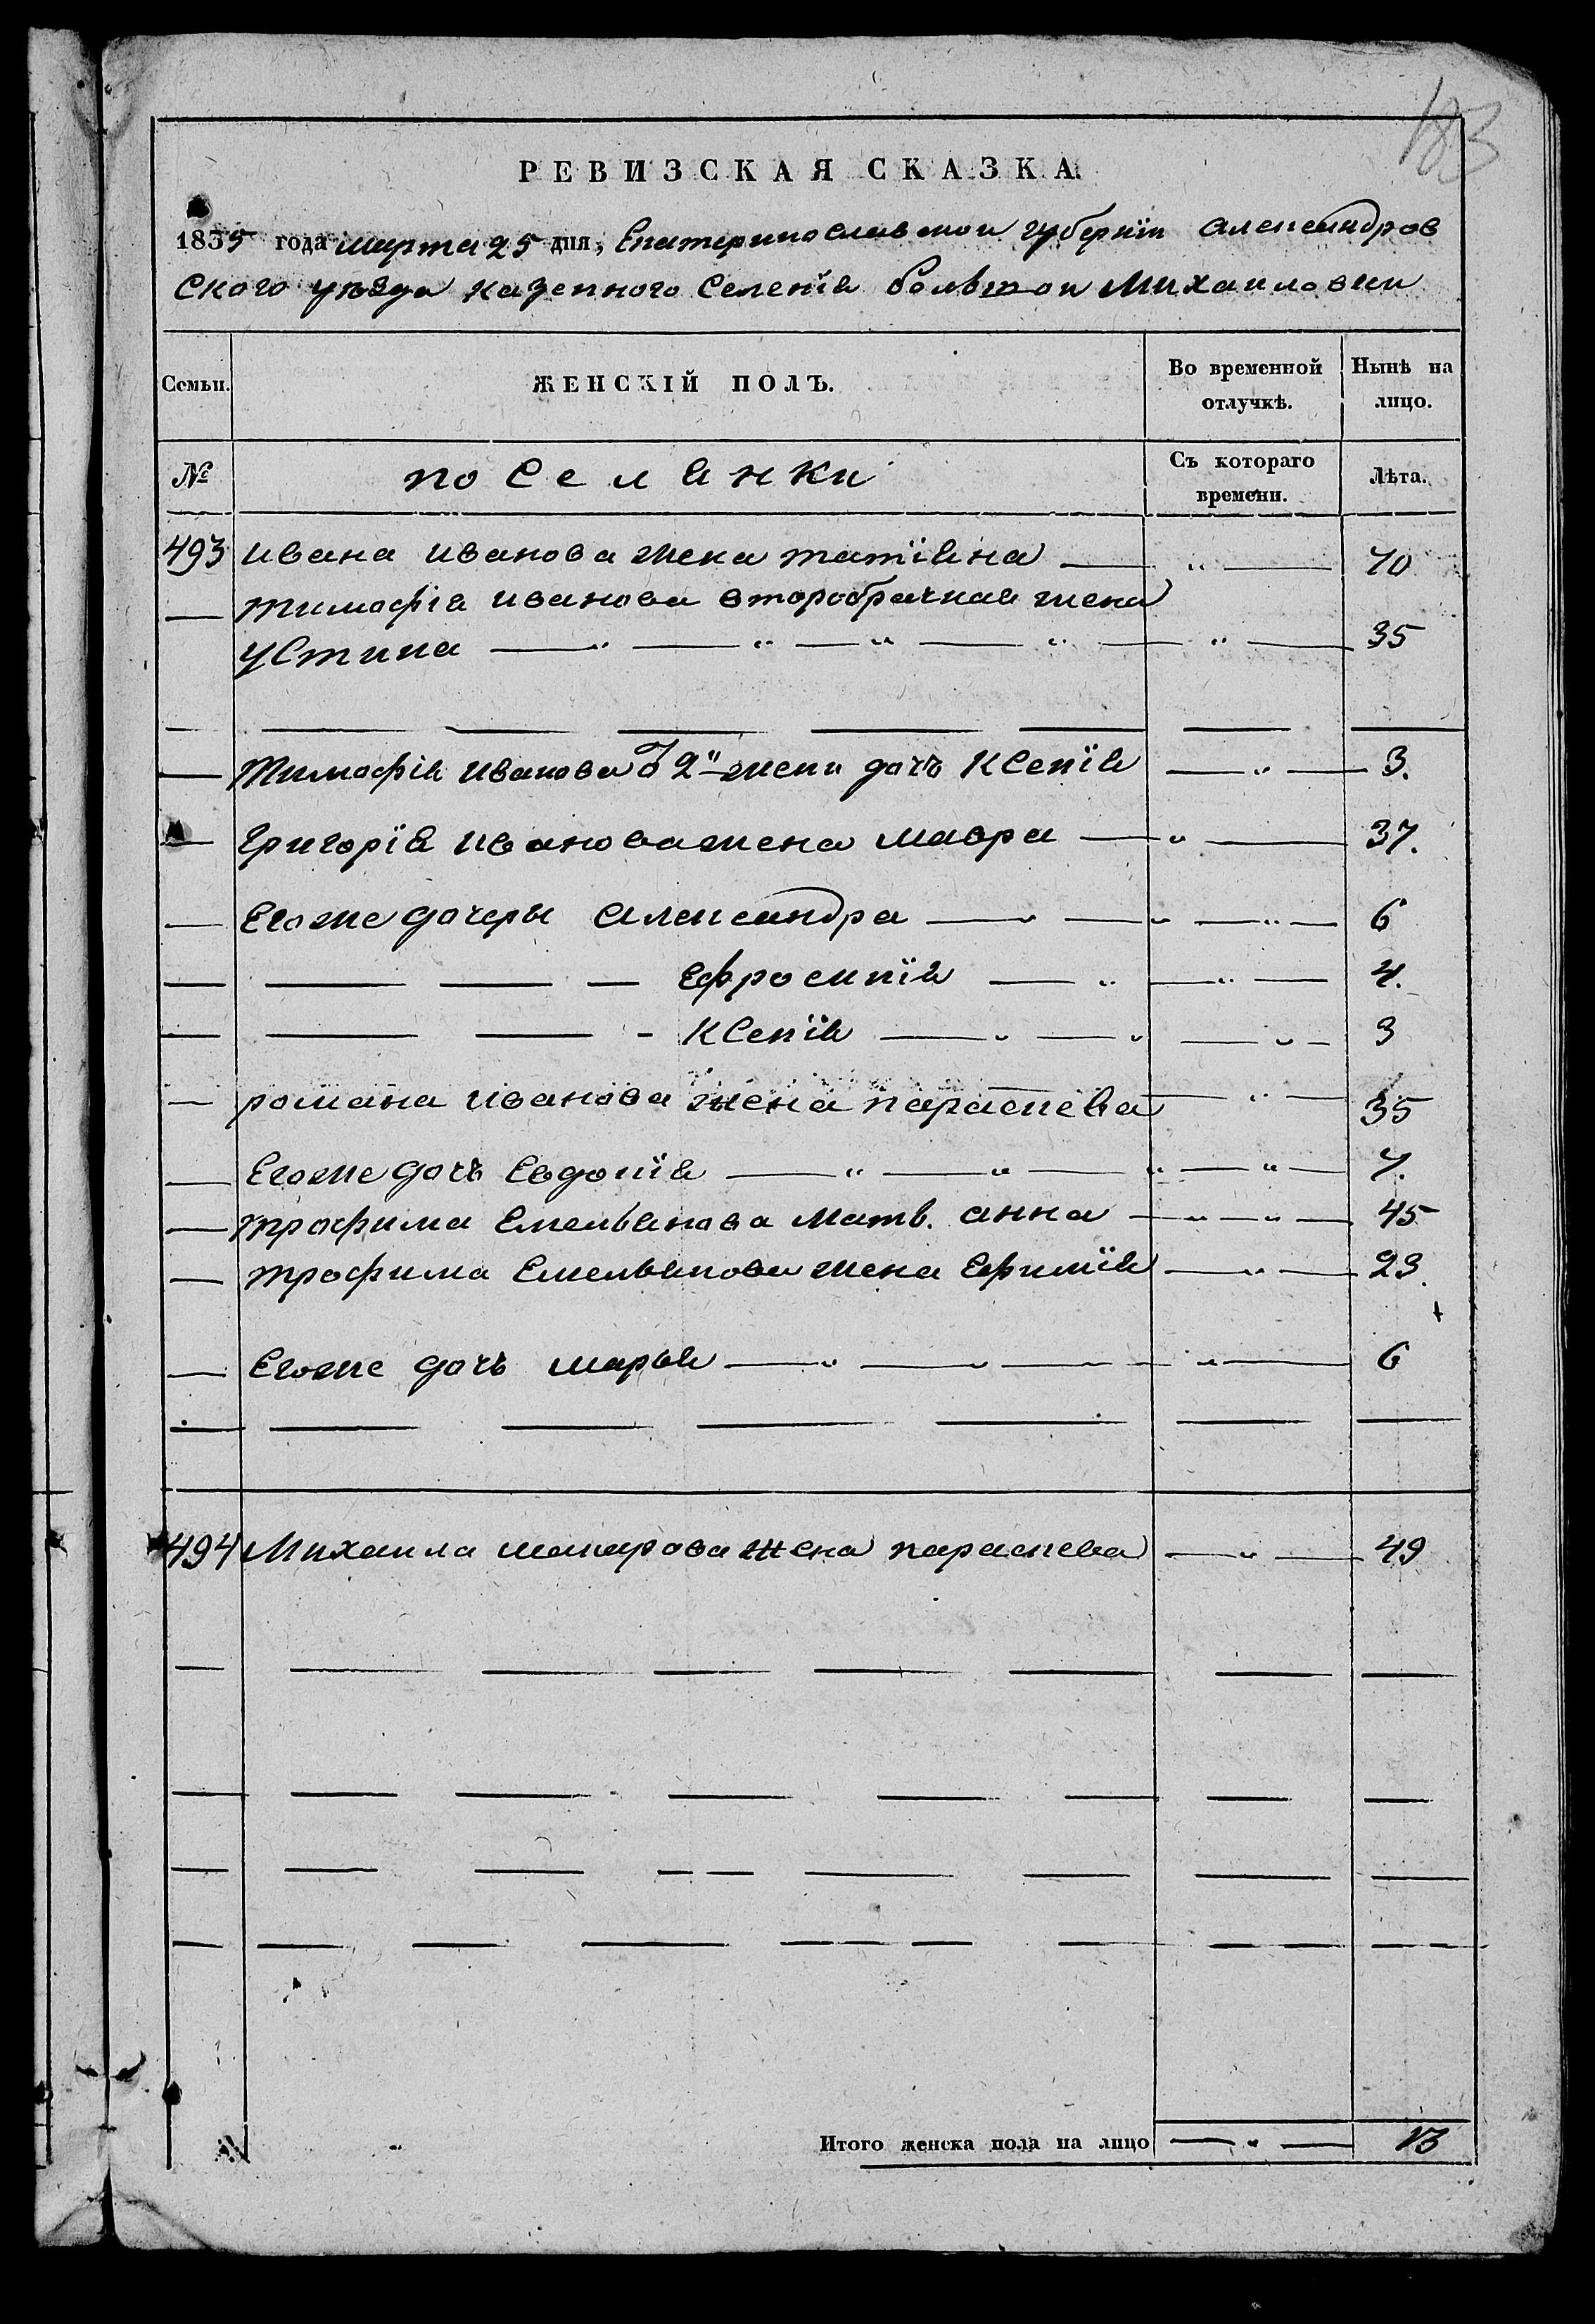 183
РЕВИЗСКАЯ СКАЗКА
1835 года марта 25 дня, Екатеринославской губернїи Александров
ского уѣзда казенного селенїя большои Михаиловки
Семьи. ЖЕНСКІЙ ПОЛЪ. Во временной отлучкѣ. Нынѣ на лицо.
№ поселянки Съ котораго времени. Лѣта.
493 ивана иванова жена татїяна — " — 70
— тимофїя иванова второбрачная жена
устина — " — " — " — " — " — 35
— тимофїя иванова от 2й жены дочь ксенїя — " — 3.
— григорїя иванова жена мавра — " — 37.
— егоже дочеры александра — " — " — " — 6
— — — — ефросинїя — " — " — 4.
— — — - ксенїя — " — " — " - 3
— романа иванова жена параскева — " — 35
— егоже дочь евдокїя — " — " — " — " — 7.
— трофима емельянова матъ. анна — " — " — 45
— трофима емельянова жена ефимїя — " — 23.
— егоже дочь марья — " — " — - " — 6
494 Михаила макарова жена параскева — " — 49
Итого женска пола на лицо — " — 13